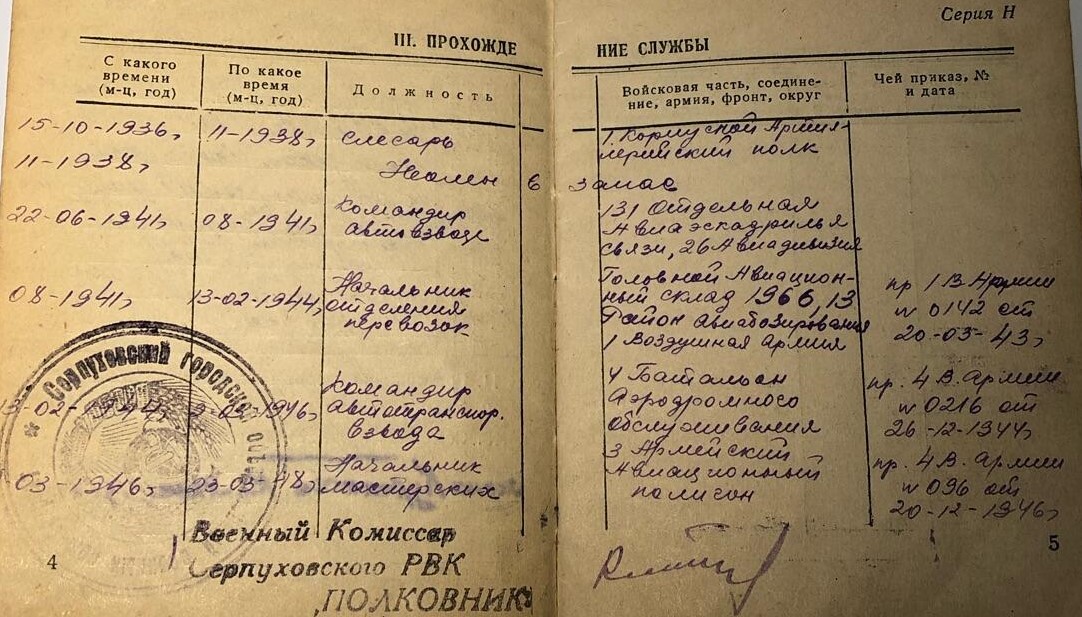 Серия Н
III. ПРОХОЖДЕ НИЕ СЛУЖБЫ
С какого времени (м-ц, год)
По какое время (м-ц, год)
Должность
Войсковая часть, соедине-
ние, армия, фронт, округ
Чей приказ, №
и дата
15-10-1936г
11-1938г
слесарь
1 Корпусной Артил-
лерийский полк
11-1938г
Уволен в запас
22-06-1941г
08-1941г
Командир
автовзвода
131 Отдельная
Авиаэскадрилья
связи, 26 Авиадивизия
08-1941г
13-02-1944г
Начальник
отделения
перевозок
Головной Авиацион-
ный склад 1966, 13
Район авиабазирования
1 Воздушная армия
пр 1 В. Армии
№ 0142 от
20-03-43г
13-02-1944г
03-1946г
Командир
автотранспор.
взвода
4 Батальон
Аэродромного
Обслуживания
пр. 4 В. Армии
№ 0216 от
26-12-1944г
03-1946г
23-03-48г
Начальник
мастерских
3 Армейский
Авиационный
полигон
пр. 4 В. Армии
№ 096 от
20-12-1946г
Серпуховский городской
Военный Комиссар
Серпуховского РВК
ПОЛКОВНИК
4
5